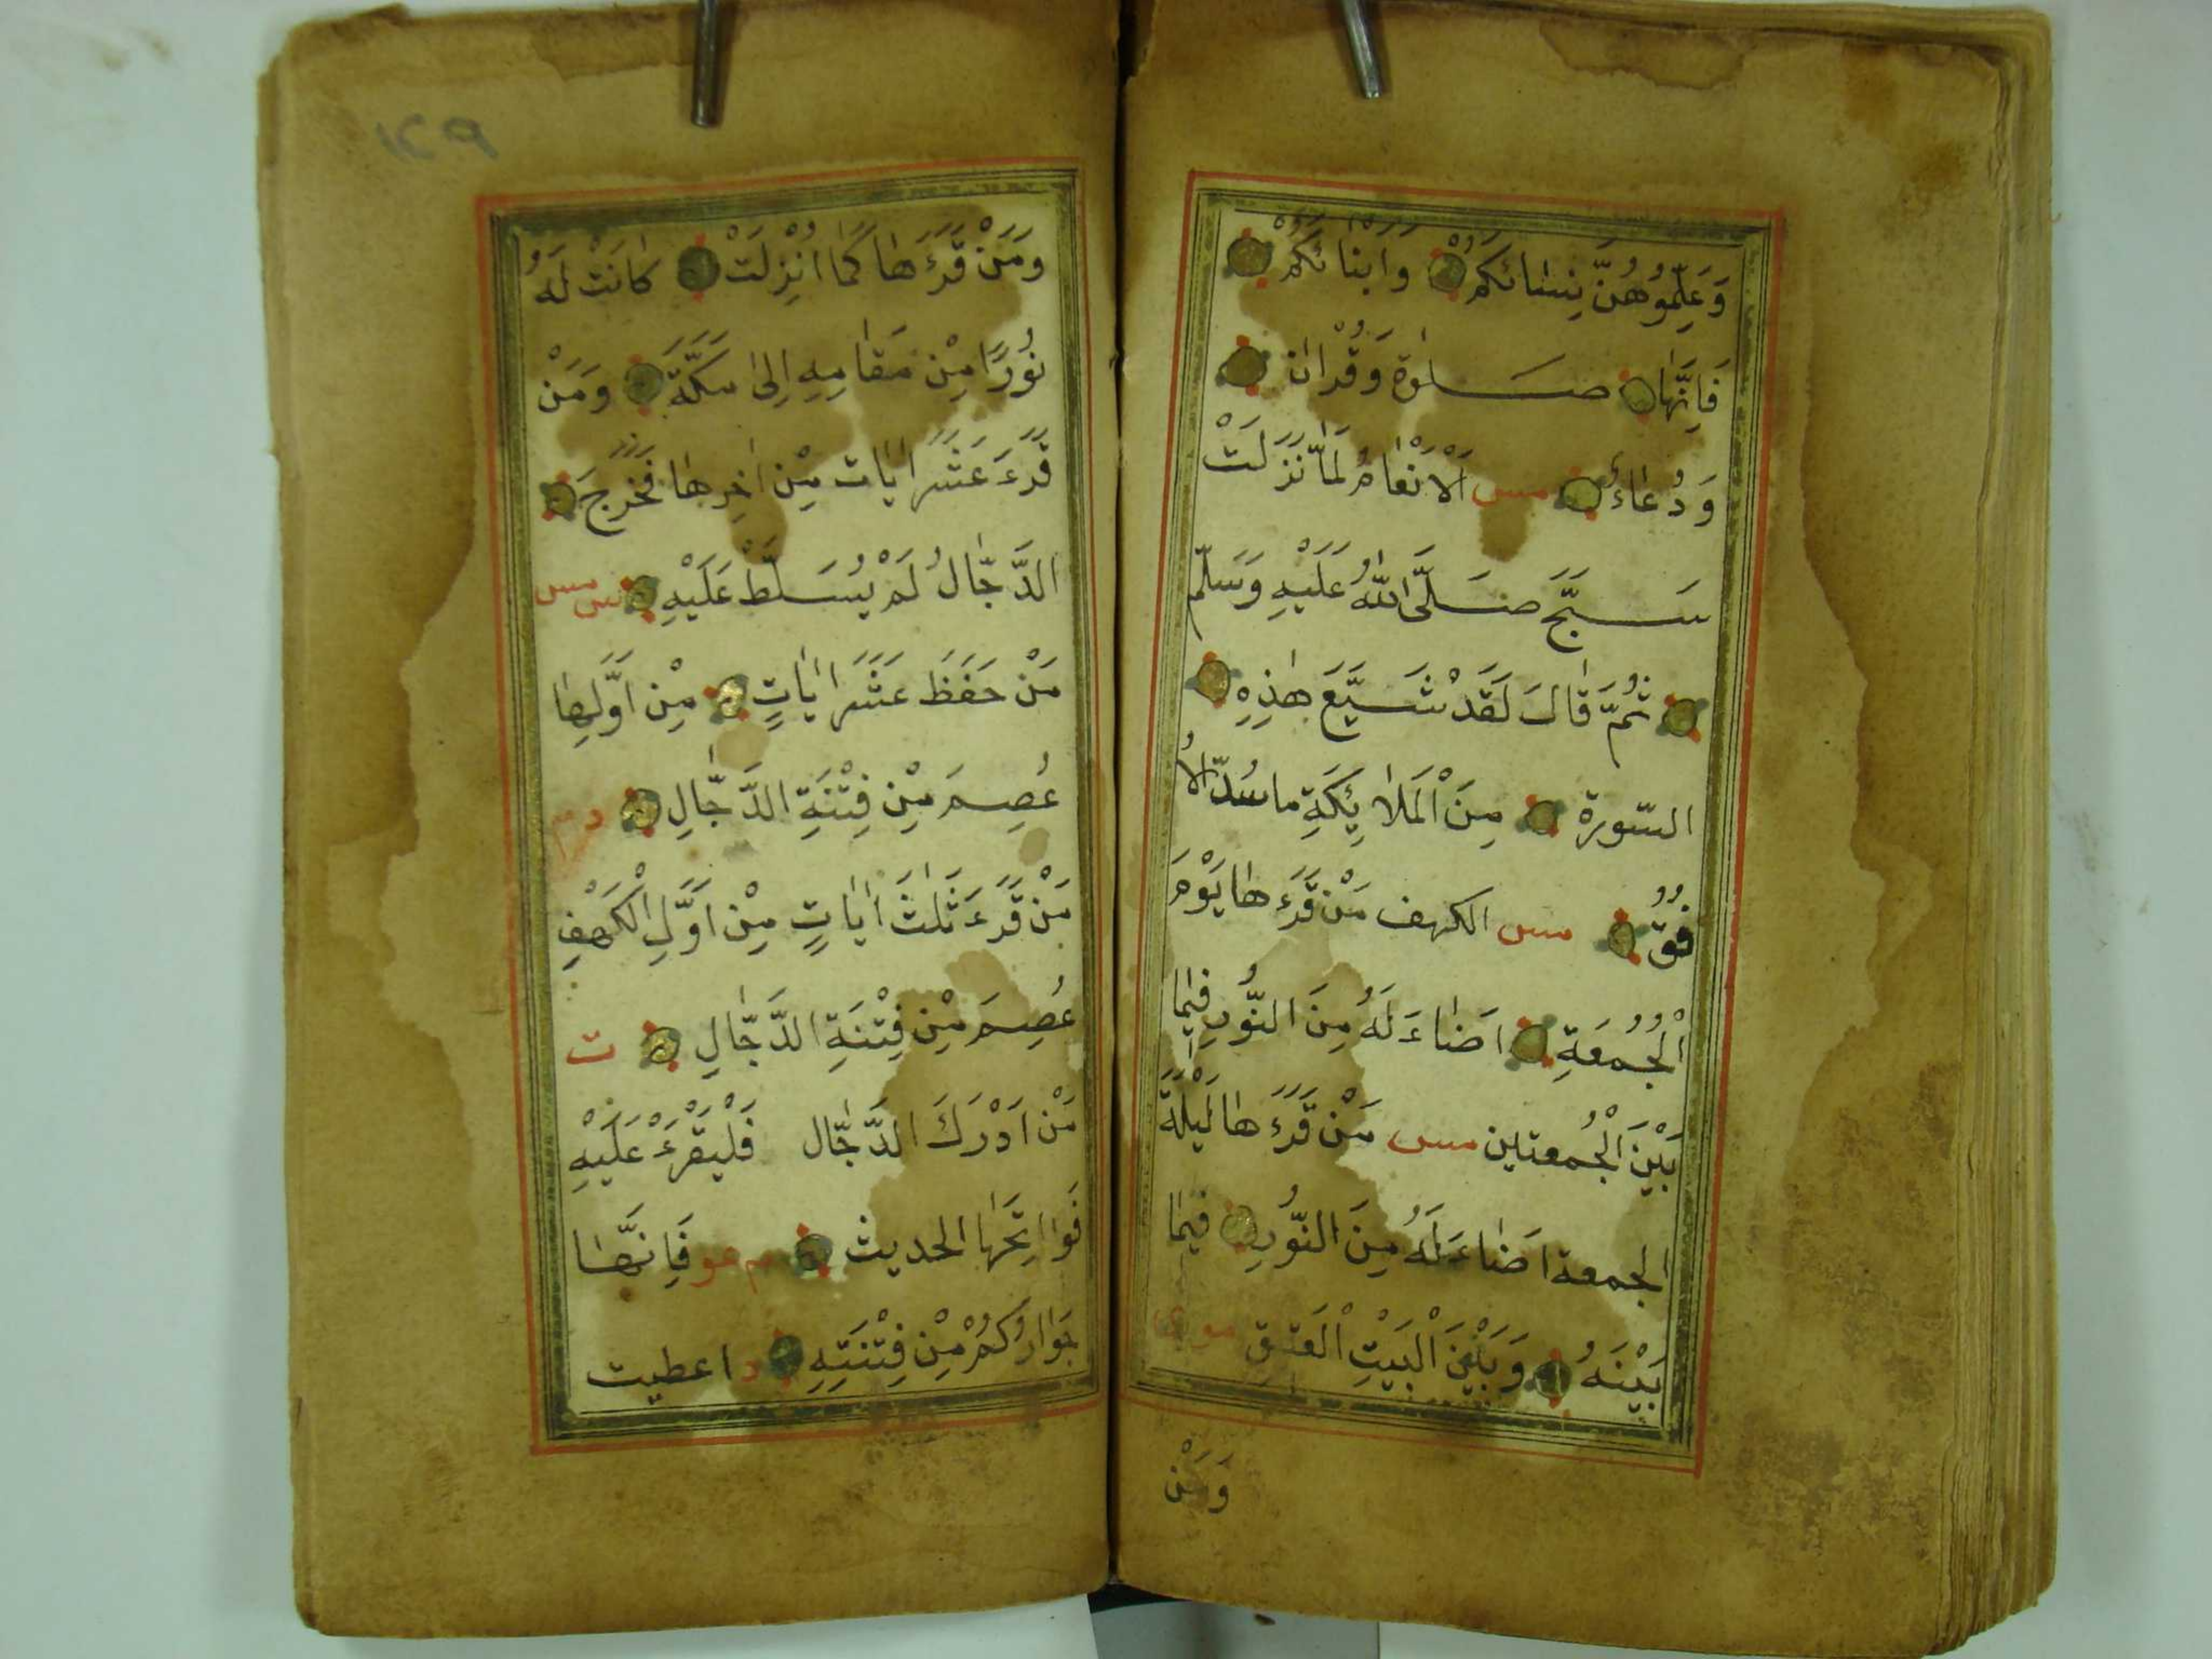 وَعَلِّمُوهُنَّ نِسَائَكُمْ وَاَبْنَائَكُمْ
فَاِنَّهَا صَلٰوة وَقُرْاٰن
وَدُعَاءُ مس اَلْاَنْعَامُ لَمَّا نَزَلَتْ
سَبَّحَ صَلَّى اللّٰهُ عَلَيْهِ وَسَلَّمَ
ثُمَّ قَالَ لَقَدْ شَيَّعَ هٰذِهِ
السّورة مِنَ الْمَلٰائِكَةِ ما سُدّ الاُ
فُقّ مس الكهف مَنْ قَرَءَهَا يَوْمَ
الْجُمُعَةِ اَضَاءَ لَهُ مِنَ النُّورِ فِيمَا
بَيْنَ الْجُمعتين مس مَنْ قَرَءَهَا لَيْلَةَ
الجمعة اَضَاءَ لَهُ مِنَ النُّورِ فِيمَا
بَيْنَهُ وَبَيْنَ الْبَيْتِ الْعَتِيقِ مو ى
وَمَن
١٤٩
وَمَنْ قَرَءَهَا كَمَا اُنْزِلَتْ كَانَتْ لَهُ
نُورًا مِنْ مَقَامِهِ اِلىٰ مَكَّةَ وَمَنْ
قَرَءَ عَشَرَ اٰيَات مِنْ اٰخِرِهَا فَخَرَجَ
الدَّجَّالُ لَمْ يُسَلَّطْ عَلَيْهِ س مس
مَنْ حَفَظَ عَشَرَ اٰيَاتٍ مِنْ اَوَّلِهَا
عُصِمَ مِنْ فِتْنَةِ الدَّجَّالِ د م
مَنْ قَرَءَ ثَلٰثَ اٰيَاتٍ مِنْ اَوَّلِ الْكَهْفِ
عُصِمَ مِنْ فِتْنَةِ الدَّجَّالِ ت
مَنْ اَدْرَكَ الدَّجَّال فَلْيَقْرَءْ عَلَيْهِ
فَوَاتِحَهَا الحديث م عو فَاِنَّهَا
جَوَارُكُمْ مِنْ فِتْنَتِهِ د اعطيت